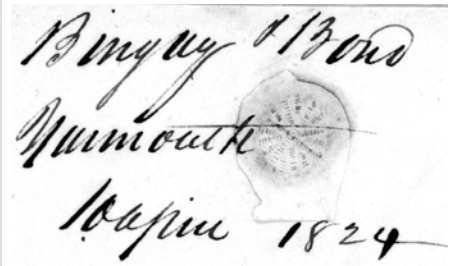 Bingley & Bond
Yarmouth
10 April 1824